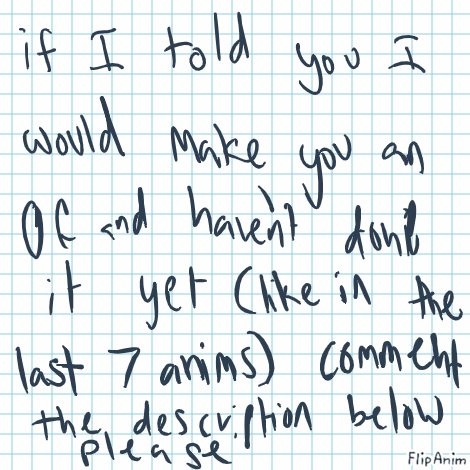 if I told you I
would make you an
OC and haven't done
it yet (like in the
last 7 anims) comment
the description below
please
FlipAnim